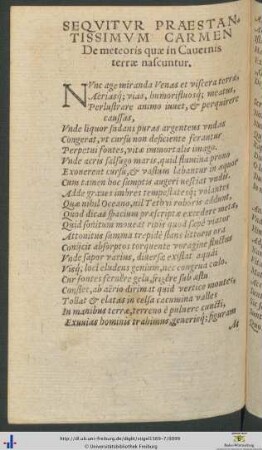 SEQVITVR PRAESTAN-
TISSIMVM CARMEN
De meteoris quæ in Cauernis
terræ nascuntur.
NVnc age miranda Venas et viscera terræ
Aëriasq; vias, immotosq; meatus,
Perlustrare animo iuuet, & perquirere
caussas,
Vnde liquor sudans puras argenteus vndas
Congerat, vt cursu non deficiente ferantur
Perpetui fontes, vitæ immortalis imago.
Vnde acris falsugo maris, quid flumina prono
Exonerent cursu, & vastum labantur in æquor
Cum tamen hoc sumptis augeri nesciat vndis.
Adde graues imbres tempestatesq; volantes
Quæ nihil Oceano, nil Tethyi roboris addunt.
Quod dicas spacium præscriptæ excedere metæ.
Quid sonitum moueat ripis quod sæpe viator
Attonitus summa trepidè stans littoris ora
Conijcit absorptos torquente voragine fluctus
Vnde sapor varius, diuersa existat aquis
Visq; loci eludens genium, nec congrua cælo.
Cur fontes feruêre gelu, frigêre sub æstu
Constet, ab aërio dirimat quid vertice montes,
Tollat & elatas in celsa cacumina valles
In manibus terræ, terreno è puluere cuncti,
Exuuias hominis trahimus, generisq; figuram
M
http://dl.ub.uni-freiburg.de/diglit/
© Universitätsbibliothek Freiburg